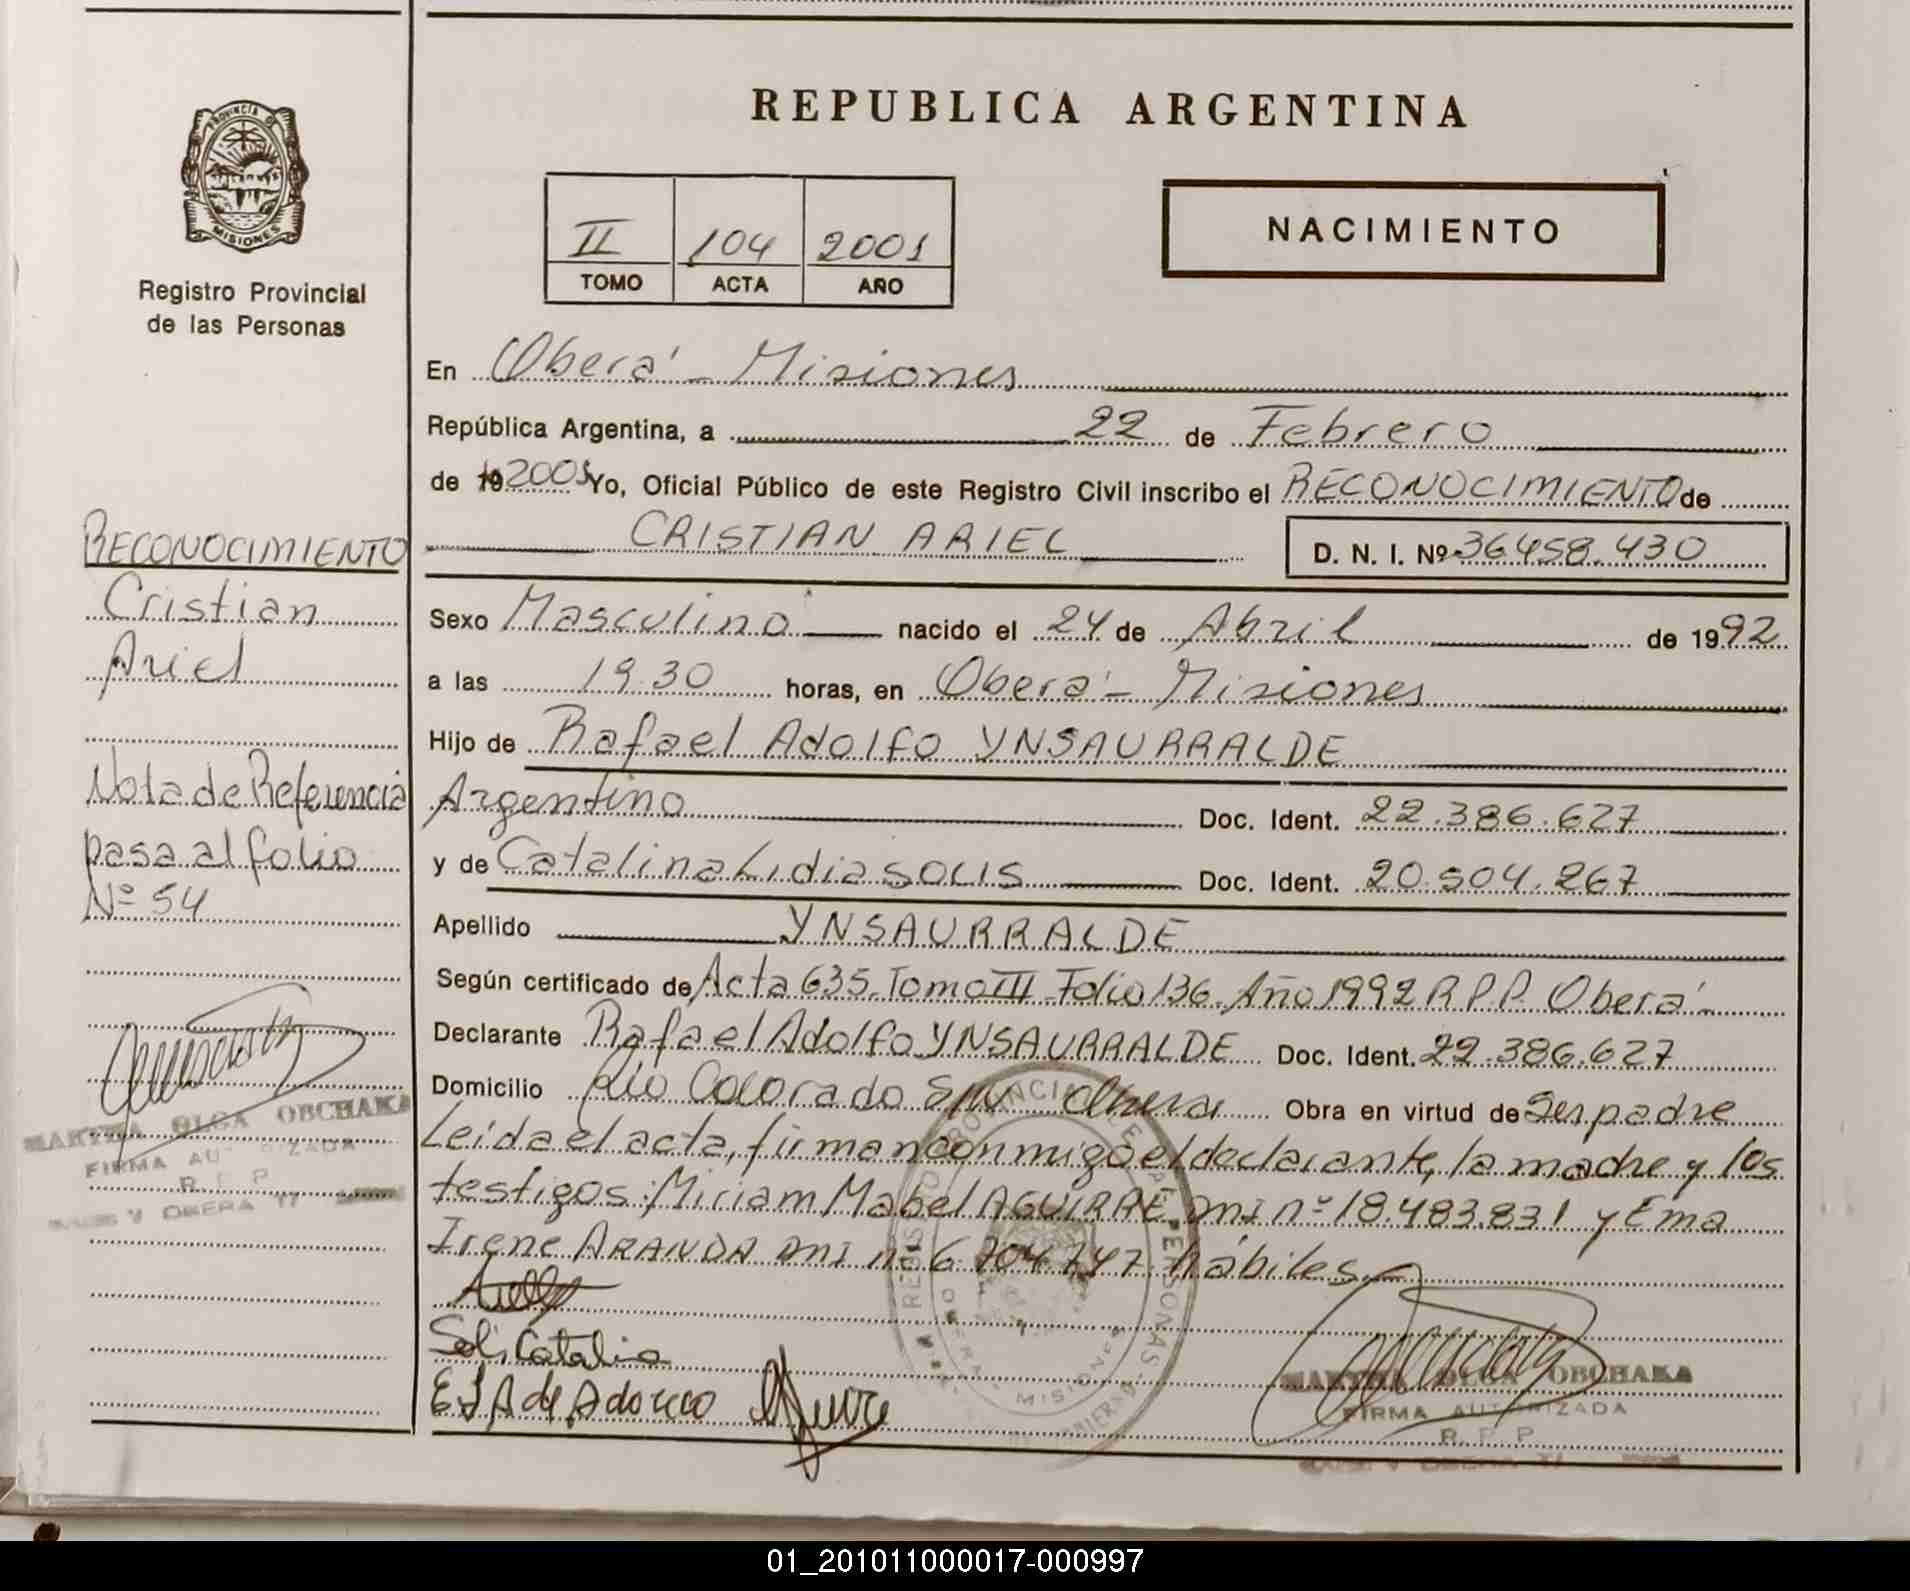 REPUBLICA ARGENTINA
PROVINCIA DE
MISIONES
Registro Provincial
de las Personas
II 104 2001
TOMO ACTA AÑO
NACIMIENTO
En Oberá - Misiones
República Argentina, a 22 de Febrero
de 19 2001 Yo, Oficial Público de este Registro Civil inscribo el RECONOCIMIENTO de
CRISTIAN ARIEL D. N. I. Nº 36.458.430
Sexo Masculino nacido el 24 de Abril de 1992
a las 19.30 horas, en Oberá - Misiones
Hijo de Rafael Adolfo YNSAURRALDE
Argentino Doc. Ident. 22.386.627
y de Catalina Lidia SOLIS Doc. Ident. 20.504.267
Apellido YNSAURRALDE
Según certificado de Acta 635 Tomo III Folio 136 Año 1992 R.P.P. Oberá -
Declarante Rafael Adolfo YNSAURRALDE Doc. Ident. 22.386.627
Domicilio Río Colorado S/N Oberá Obra en virtud de Ser padre
Leída el acta, firman conmigo el declarante, la madre y los
testigos: Miriam Mabel AGUIRRE DNI nº 18.483.831 y Ema
Irene ARANDA DNI nº 6.704.747 hábiles
RECONOCIMIENTO
Cristian
Ariel
Nota de Referencia
pasa al folio
Nº 54
MARTHA OLGA OBCHAKA
FIRMA AUTORIZADA
R. P. P.
OBERA
REGISTRO PROVINCIAL DE LAS PERSONAS
OBERA - MISIONES
MARTHA OLGA OBCHAKA
FIRMA AUTORIZADA
R. P. P.
01_201011000017-000997